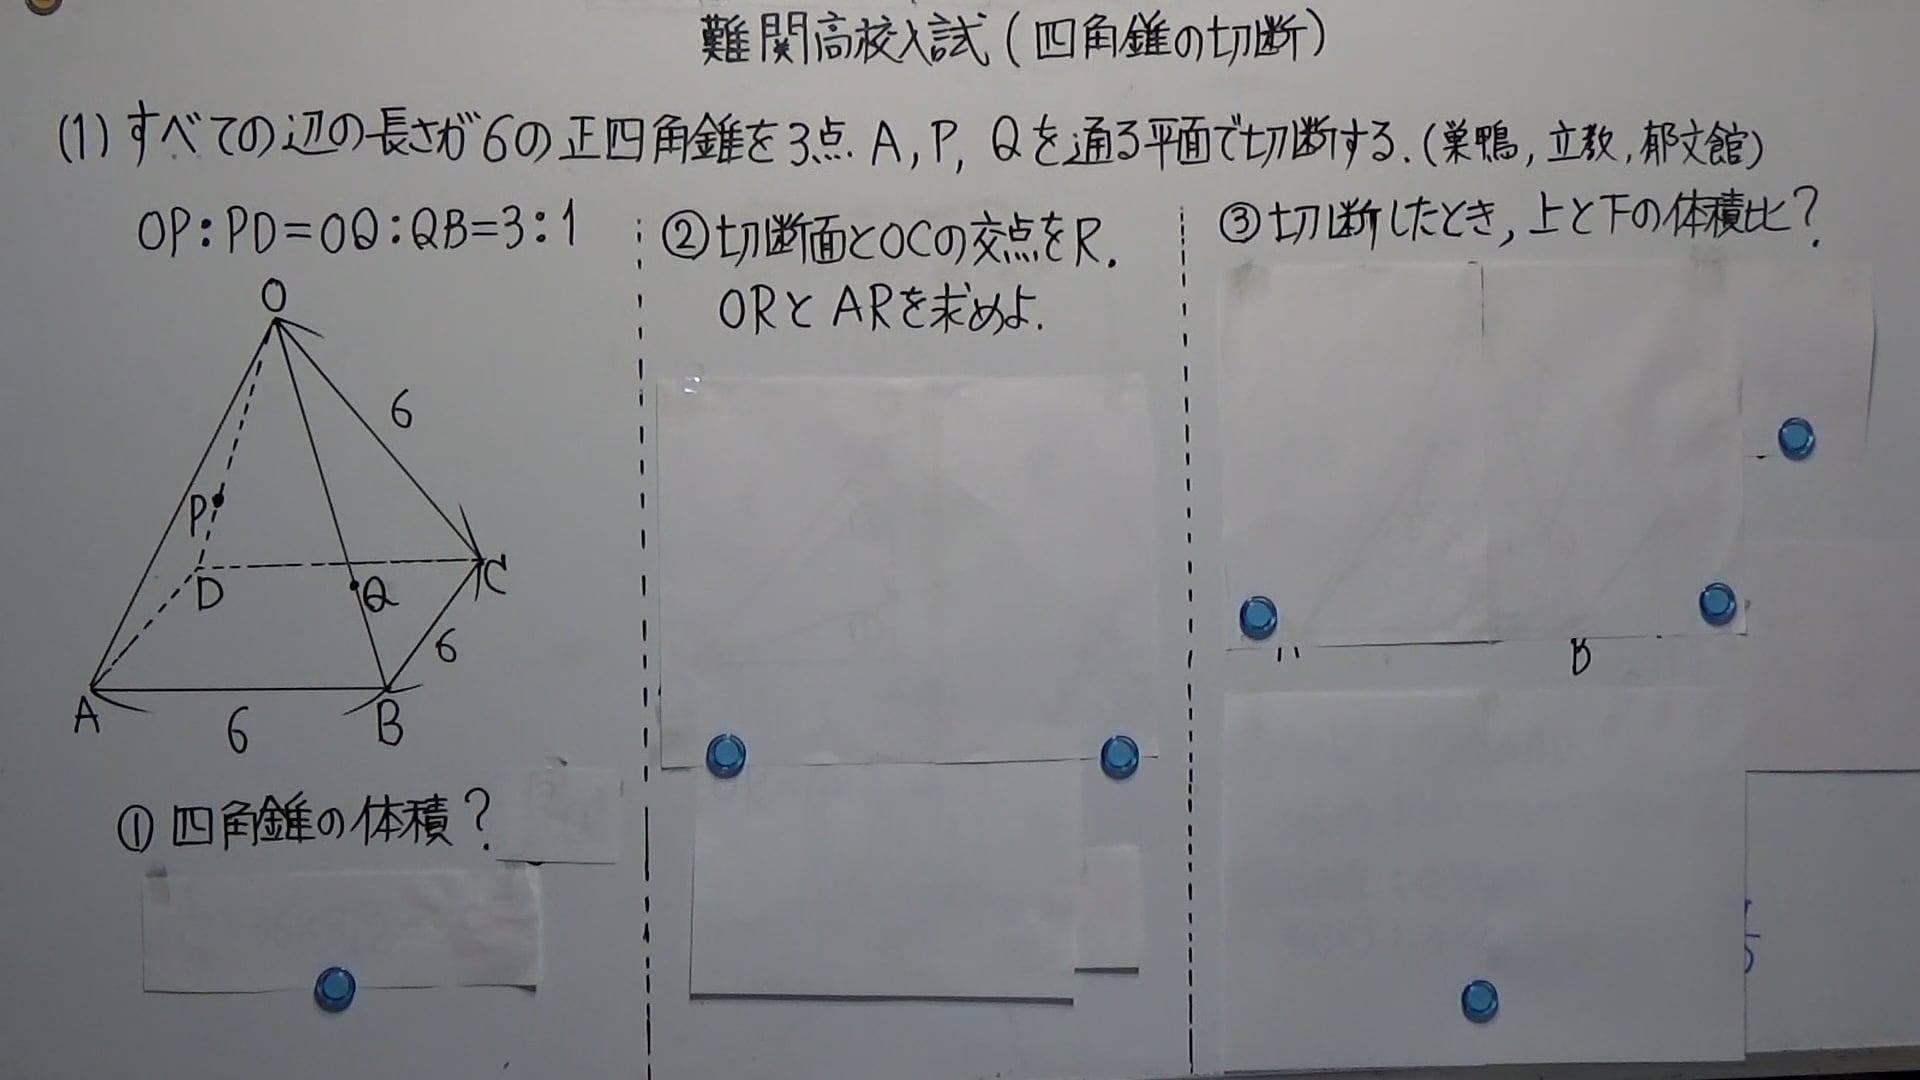 難関高校入試(四角錐の切断)
(1)すべての辺の長さが6の正四角錐を3点A,P,Qを通る平面で切断する.(巣鴨,立教,郁文館)
OP:PD=OQ:QB=3:1
O
6
P
D
Q
C
6
A
6
B
①四角錐の体積?
②切断面とOCの交点をR.
ORとARを求めよ.
③切断したとき,上と下の体積比?
B